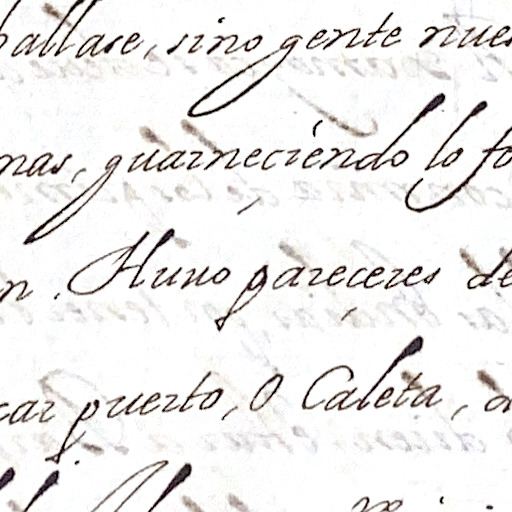 hallase, sino gente nues
nas, guarneciendo lo fo
n. Huuo pareceres de
car puerto, o Caleta,